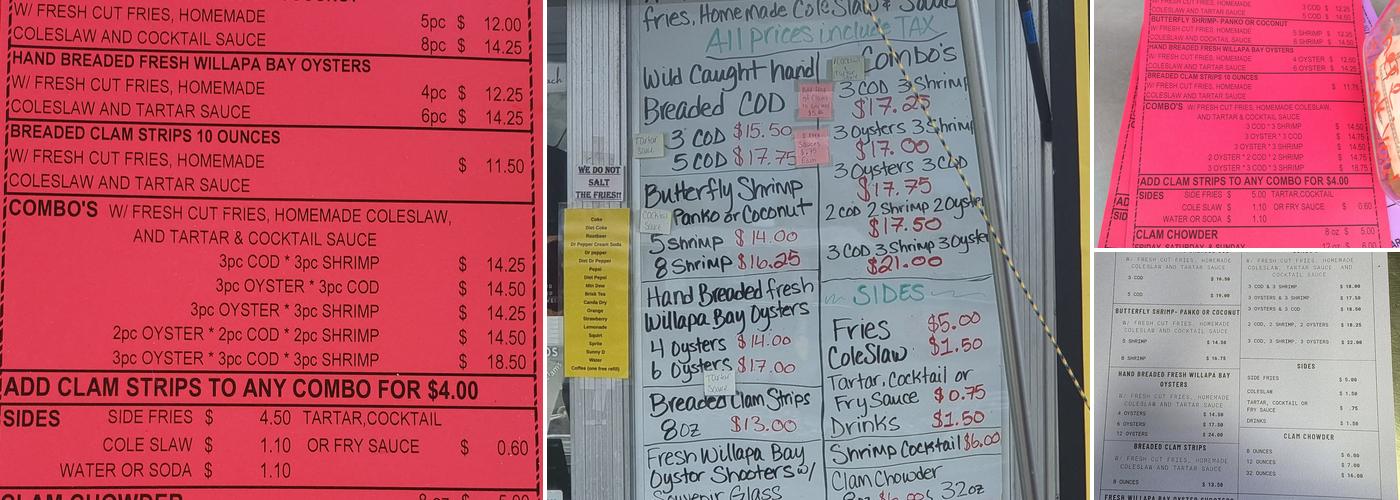 W/ FRESH CUT FRIES, HOMEMADE
COLESLAW AND COCKTAIL SAUCE
5pc $ 12.00
8pc $ 14.25
HAND BREADED FRESH WILLAPA BAY OYSTERS
W/ FRESH CUT FRIES, HOMEMADE
COLESLAW AND TARTAR SAUCE
4pc $ 12.25
6pc $ 14.25
BREADED CLAM STRIPS 10 OUNCES
W/ FRESH CUT FRIES, HOMEMADE
COLESLAW AND TARTAR SAUCE
$ 11.50
COMBO'S W/ FRESH CUT FRIES, HOMEMADE COLESLAW,
AND TARTAR & COCKTAIL SAUCE
3pc COD * 3pc SHRIMP $ 14.25
3pc OYSTER * 3pc COD $ 14.50
3pc OYSTER * 3pc SHRIMP $ 14.25
2pc OYSTER * 2pc COD * 2pc SHRIMP $ 14.50
3pc OYSTER * 3pc COD * 3pc SHRIMP $ 18.50
ADD CLAM STRIPS TO ANY COMBO FOR $4.00
SIDES SIDE FRIES $ 4.50 TARTAR,COCKTAIL
COLE SLAW $ 1.10 OR FRY SAUCE $ 0.60
WATER OR SODA $ 1.10
CLAM CHOWDER 8 oz $ 5.00
fries, Homemade ColeSlaw & Sauce
All prices include TAX
Wild Caught hand
Breaded COD
3 COD $15.50
5 COD $17.75
Butterfly Shrimp
Panko or Coconut
5 shrimp $14.00
8 Shrimp $16.25
Hand Breaded fresh
Willapa Bay Oysters
4 Oysters $14.00
6 Oysters $17.00
Breaded Clam Strips
8oz $13.00
Fresh Willapa Bay
Oyster Shooters w/
Souvenir Glass
Combo's
3 COD 3 Shrimp
$17.25
3 Oysters 3 Shrimp
$17.00
3 Oysters 3 COD
$17.75
2 COD 2 Shrimp 2 Oyster
$17.50
3 COD 3 Shrimp 3 Oyster
$21.00
SIDES
Fries $5.00
ColeSlaw $1.50
Tartar, Cocktail or
Fry Sauce $0.75
Drinks $1.50
Shrimp Cocktail $6.00
Clam Chowder
32oz
Tartar
Sauce
Cocktail
Sauce
Tartar
Sauce
WE DO NOT
SALT
THE FRIES!!
Coke
Diet Coke
Rootbeer
Dr Pepper Cream Soda
Dr pepper
Diet Dr Pepper
Pepsi
Diet Pepsi
Mtn Dew
Brisk Tea
Canda Dry
Orange
Strawberry
Lemonade
Squirt
Sprite
Sunny D
Water
Coffee (one free refill)
3 COD $ 12.25
5 COD $ 14.50
BUTTERFLY SHRIMP- PANKO OR COCONUT
W/ FRESH CUT FRIES, HOMEMADE
COLESLAW AND COCKTAIL SAUCE
5 SHRIMP $ 12.25
8 SHRIMP $ 14.50
HAND BREADED FRESH WILLAPA BAY OYSTERS
W/ FRESH CUT FRIES, HOMEMADE
COLESLAW AND TARTAR SAUCE
4 OYSTER $ 12.50
6 OYSTER $ 14.25
BREADED CLAM STRIPS 10 OUNCES
W/ FRESH CUT FRIES, HOMEMADE
COLESLAW AND TARTAR SAUCE
$ 11.75
COMBO'S W/ FRESH CUT FRIES, HOMEMADE COLESLAW,
AND TARTAR & COCKTAIL SAUCE
3 COD * 3 SHRIMP $ 14.50
3 OYSTER * 3 COD $ 14.75
3 OYSTER * 3 SHRIMP $ 14.50
2 OYSTER * 2 COD * 2 SHRIMP $ 14.75
3 OYSTER * 3 COD * 3 SHRIMP $ 18.75
ADD CLAM STRIPS TO ANY COMBO FOR $4.00
SIDES SIDE FRIES $ 5.00 TARTAR,COCKTAIL
COLE SLAW $ 1.10 OR FRY SAUCE $ 0.60
WATER OR SODA $ 1.10
CLAM CHOWDER 8 oz $ 5.00
FRIDAY, SATURDAY & SUNDAY 12 oz $ 6.00
AD
SID
W/ FRESH CUT FRIES, HOMEMADE
COLESLAW AND TARTAR SAUCE
3 COD $ 16.50
5 COD $ 19.00
BUTTERFLY SHRIMP- PANKO OR COCONUT
W/ FRESH CUT FRIES, HOMEMADE
COLESLAW AND COCKTAIL SAUCE
5 SHRIMP $ 14.50
8 SHRIMP $ 16.75
HAND BREADED FRESH WILLAPA BAY
OYSTERS
W/ FRESH CUT FRIES, HOMEMADE
COLESLAW AND TARTAR SAUCE
4 OYSTERS $ 14.50
6 OYSTERS $ 17.50
12 OYSTERS $ 24.00
BREADED CLAM STRIPS
W/ FRESH CUT FRIES, HOMEMADE
COLESLAW AND TARTAR SAUCE
8 OUNCES $ 13.50
FRESH WILLAPA BAY OYSTER SHOOTERS
W/ FRESH CUT FRIES, HOMEMADE
COLESLAW AND TARTAR SAUCE AND
COCKTAIL SAUCE
3 COD & 3 SHRIMP $ 18.00
3 OYSTERS & 3 SHRIMP $ 17.50
3 OYSTERS & 3 COD $ 18.50
2 COD, 2 SHRIMP, 2 OYSTERS $ 18.25
3 COD, 3 SHRIMP, 3 OYSTERS $ 22.00
SIDES
SIDE FRIES $ 5.00
COLESLAW $ 1.50
TARTAR, COCKTAIL OR
FRY SAUCE $ .75
DRINKS $ 1.50
CLAM CHOWDER
8 OUNCES $ 6.00
12 OUNCES $ 7.00
32 OUNCES $ 16.00